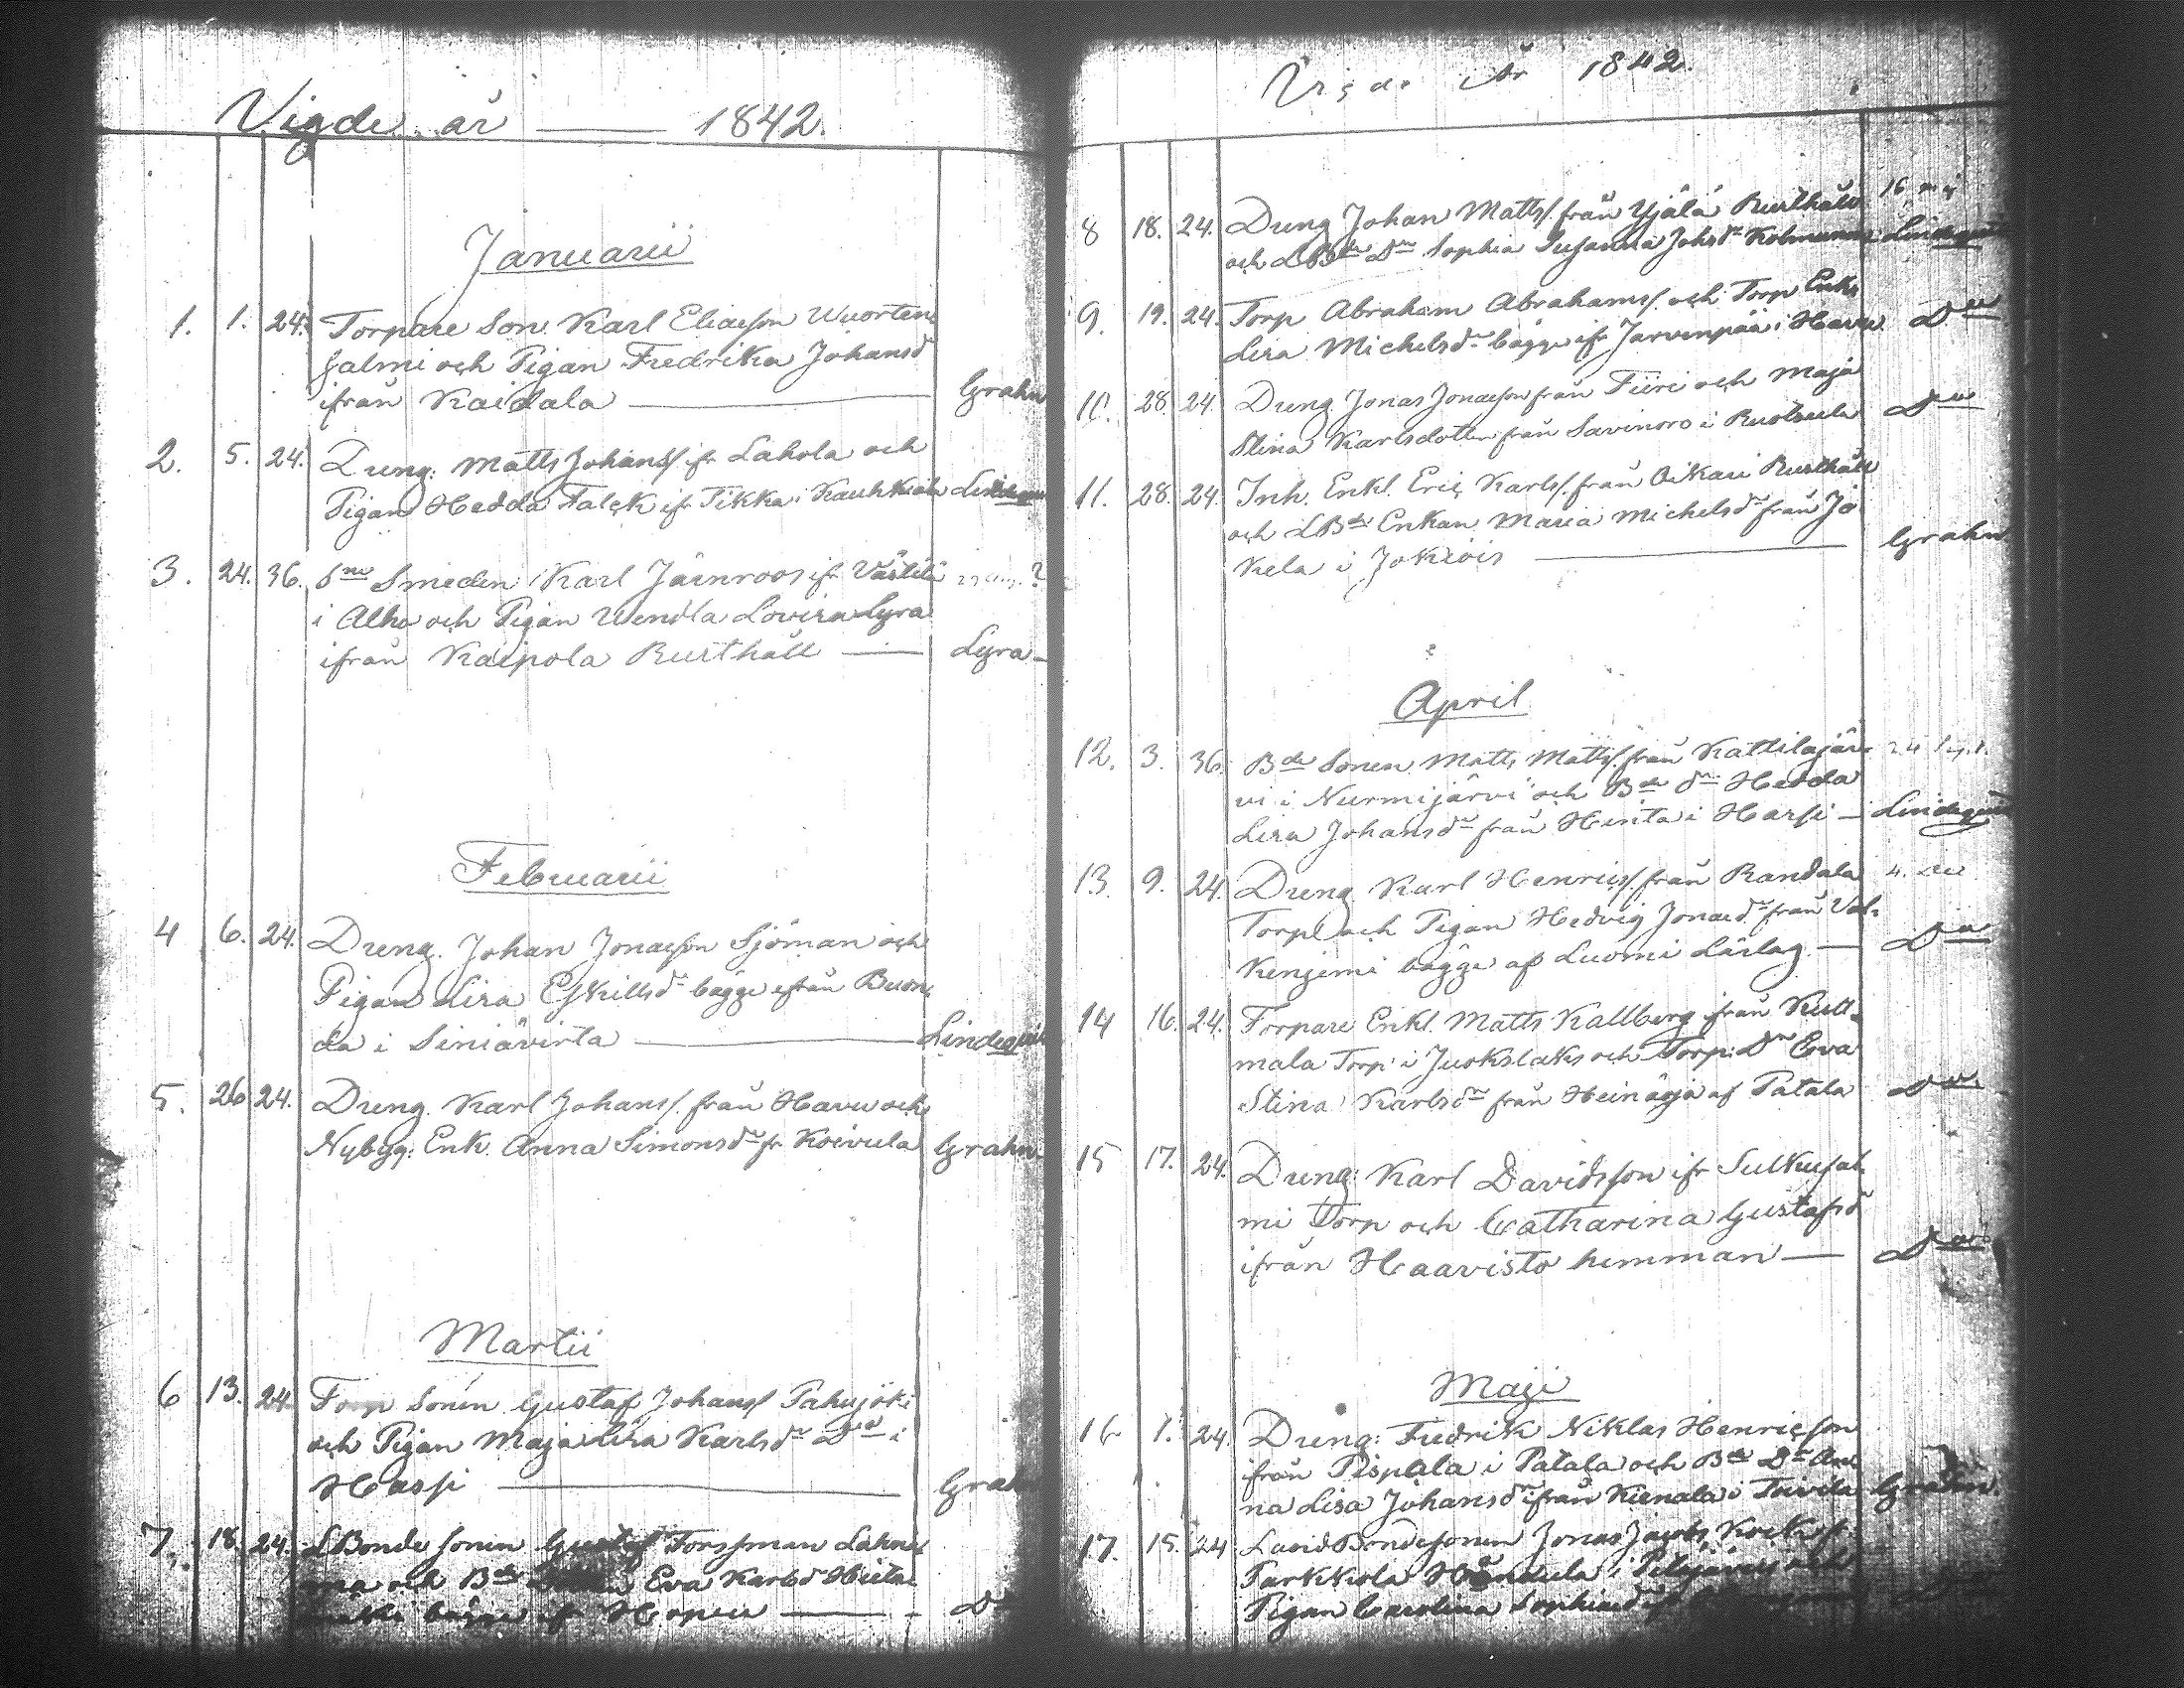 Vigde år — 1842.
Januarii
1. 1. 24. Torpare Son Karl Eliasson Wuorten
salmi och Pigan Fredrika Johansdr
ifrån Kaidala — Grahn
2. 5. 24. Dreng. Matts Johanss. ifr Lahola och
Pigan Hedda Falck ifr Tikka i Kauhkiala
3. 24. 36. Smeden Karl Järnroos ifr Västilä
i Alho och Pigan Wendla Lovisa Lyra
ifrån Kaipola Rusthåll — Lyra
Februarii
4 6. 24. Dreng. Johan Jonasson Sjöman och
Pigan Lisa Eskillsdr bägge ifrån Buon
da i Siniävirta — Lindeqvist
5. 26 24. Dreng. Karl Johans. från Havu och
Nybyg: Enk. Anna Simonsdr fr Koivula Grahn
Martii
6 13. 24. Torp Sonen Gustaf Johanss Pahujoki
och Pigan Maja Lisa Karlsdr Do i
Hassi — Grahn
7. 18. 24. LBonde sonen Gustaf Forssman Lahne
ma och Bde Eva Karlsdr
bägge ifr — Do
Vigde År 1842.
8 18. 24. Dreng Johan Matts. från Yjälä Rusthåll 16
och LBde Dr Sophia Susanna Johsdr Lindeqvist
9. 19. 24. Torp Abraham Abrahamss. och Torp Enka
Lisa Michelsdr bägge ifr Jarvenpää i Do
10. 28. 24. Dreng. Jonas Jonasson från Tiiri och Maja
Stina Karlsdotter från Savinoro i Ruotsula Do
11. 28. 24. Inh. Enkl. Eric Karls. från Oikari Rusthåll
och LBde Enkan Maria Michelsdr från Jo
kela i Jokiois — Grahn
April
12. 3. 36. Bde Sonen Matts Matts. från Kattilajär
vi i Nurmijärvi och Bde dr Hedda
Lisa Johansdr från Hirita i Harsi — Lindeqvist
13. 9. 24. Dreng Karl Henrics. från Randala
Torp och Pigan Hedvig Jonasdr från Val
kenjemi bägge af Luomi Lärlag — Do
14 16. 24. Torpare Enkl. Matts Kallberg ifrån Kull
mala Torp i Juokslaks och Torp: Dr Eva
Stina Karlsdr från Heinäsja af Patala Do
15 17. 24. Dreng: Karl Davidsson ifr Sulkusal
mi Torp och Catharina Gustafsdr
ifrån Haavisto hemman — Do
Maji
16 1. 24. Dreng: Fredrik Niklas Henricson
ifrån Pispala i Patala och Bde Dr An
na Lisa Johansdr ifrån Kienala i Toivila Grahn
17. 15. 24 Bondesonen Jonas Jacobs.
Parkkola i
Pigan Carolina